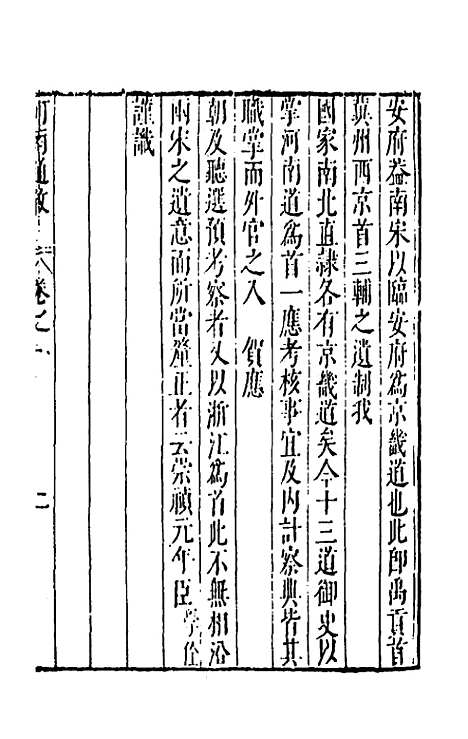 安府葢南宋以臨安府爲京畿道也此卽禹貢首
冀州西京首三輔之遺制我
國家南北直隸各有京畿道矣今十三道御史以
掌河南道爲首一應考核事宜及內計察典皆其
職掌而外官之入 賀應
朝及聽選預考察者又以浙江爲首此不無相沿
兩宋之遺意而所當釐正者云崇禎元年臣學佺
謹識
卷之一 二